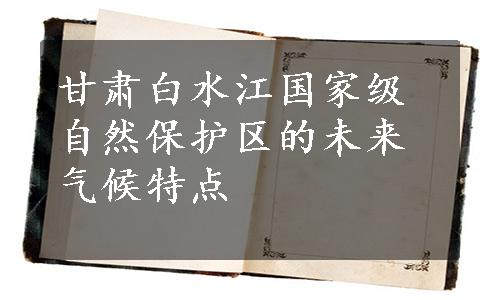 甘肃白水江国家级
自然保护区的未来
气候特点